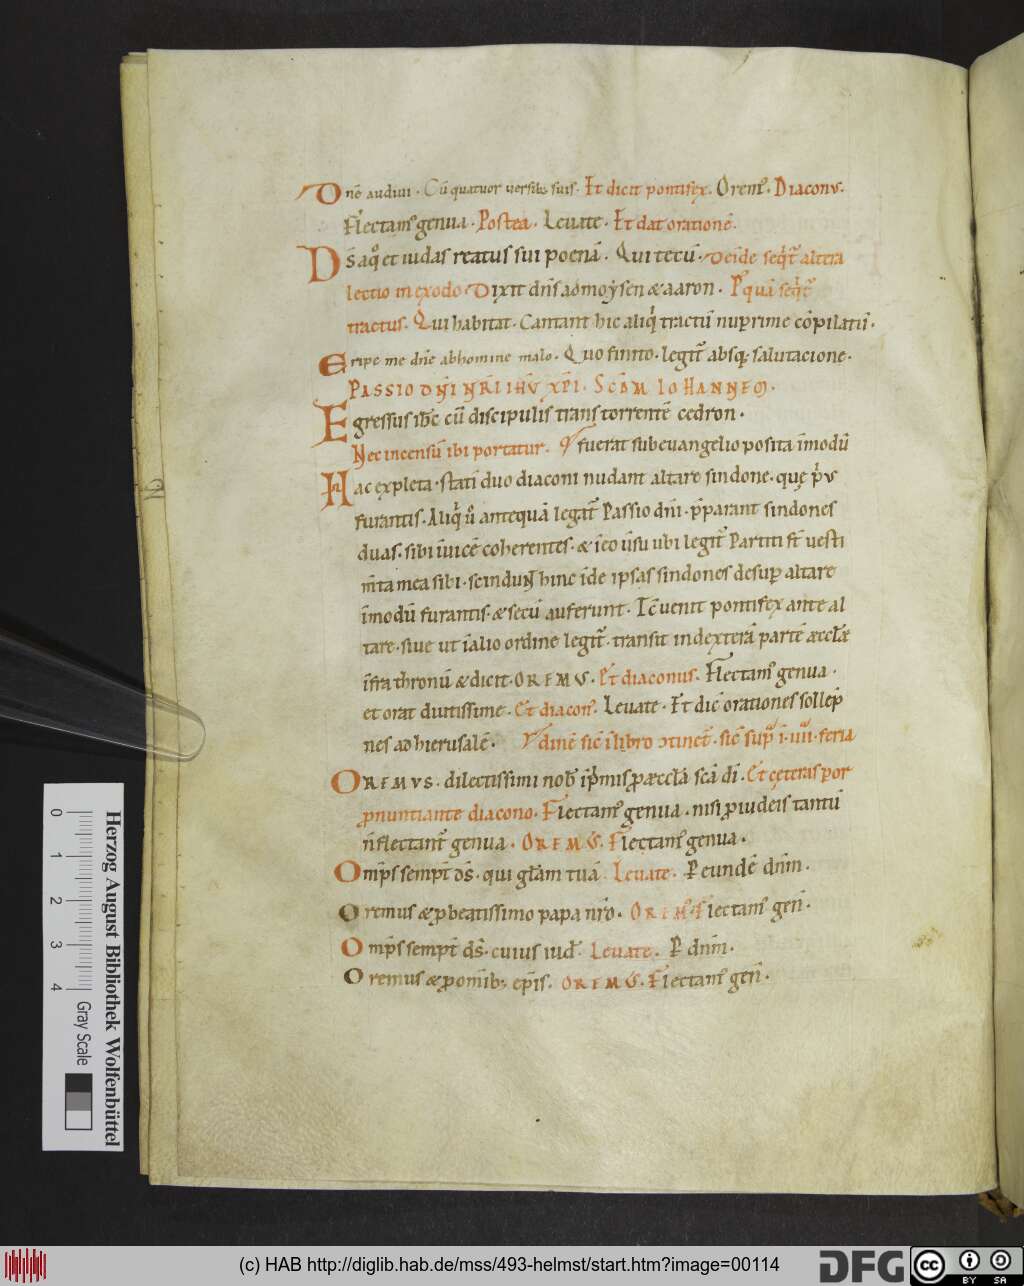 Dnē audiui · Cū quatuor uersib; suis · Et dicit pontifex · Orem᷒ · Diaconus ·
Flectam᷒ genua · Postea · Leuate · Et dat orationē ·
Ds̄ a q̊ et iudas reatus sui poenā · Qui tecū · Deīde seqͥt᷑ altera
lectio in exodo · Dixit dn̄s ad moysen & aaron · P᷒ quā seqͥt᷑
tractus · Qui habitat · Cantant hic aliqͥ tractū nup̱rime cōpilatū ·
Eripe me dn̄e ab homine malo · Quo finito · legit᷑ absq; salutacione ·
PASSIO DN̄I NR̄I IHV XPI · SCDM IOHANNEM ·
Egressus ih̄c cū discipulis trans torrentē cedron ·
Nec incensū ibi portatur · fuerat sub euangelio posita īmodū
Hac expleta · statī duo diaconi nudant altare sindone · quę pͥus
furantis · Aliqͥ ū antequā legat᷑ Passio dn̄i · p̄parant sindones
duas · sibi īuicē coherentes · & īeo ūsu ubi legit᷑ Partiti st̄ uesti
m̄ta mea sibi · scindunt̄ hinc īde ipsas sindones desup̱ altare
īmodū furantis · & secū auferunt · Tc̄ uenit pontifex ante al
tare · siue ut īalio ordine legit᷑ · transit in dexterā partē æccl̄æ
īfra thronū & dicit · OREMVS · Et diaconus · Flectam᷒ genua ·
et orat diutissime · Et diacon᷒ · Leuate · Et dic̄ orationes sollēp
nes ad hierusalē · Ordinē sic̄ ī libro ↄtinet᷑ · sic̄ supͣ ī · iiii · feria
OREMVS · dilectissimi nob̄ īpͥmis p̱ æccl̄a scā dī · Et cęteras por
p̱nuntiante diacono · Flectam᷒ genua · nisi p̱ iudeis tantū
n̄ flectant᷑ genua · OREMVS · Flectam᷒ genua ·
Omp̄s sempt̄ ds̄ · qui gl̄am tuā · Leuate · P̱ eundē dn̄m ·
Oremus & p̱ beatissimo papa nr̄o · OREM᷒ · Flectam᷒ gen̄ ·
Omp̄s sempt̄ ds̄ · cuius iud̄ · Leuate · P̱ dn̄m ·
Oremus & p̱ omīb; ep̄is · OREMVS · Flectam᷒ gen̄ ·
0 1 2 3 4
Herzog August Bibliothek Wolfenbüttel
Gray Scale
(c) HAB http://diglib.hab.de/mss/493-helmst/start.htm?image=00114
DFG
cc BY SA